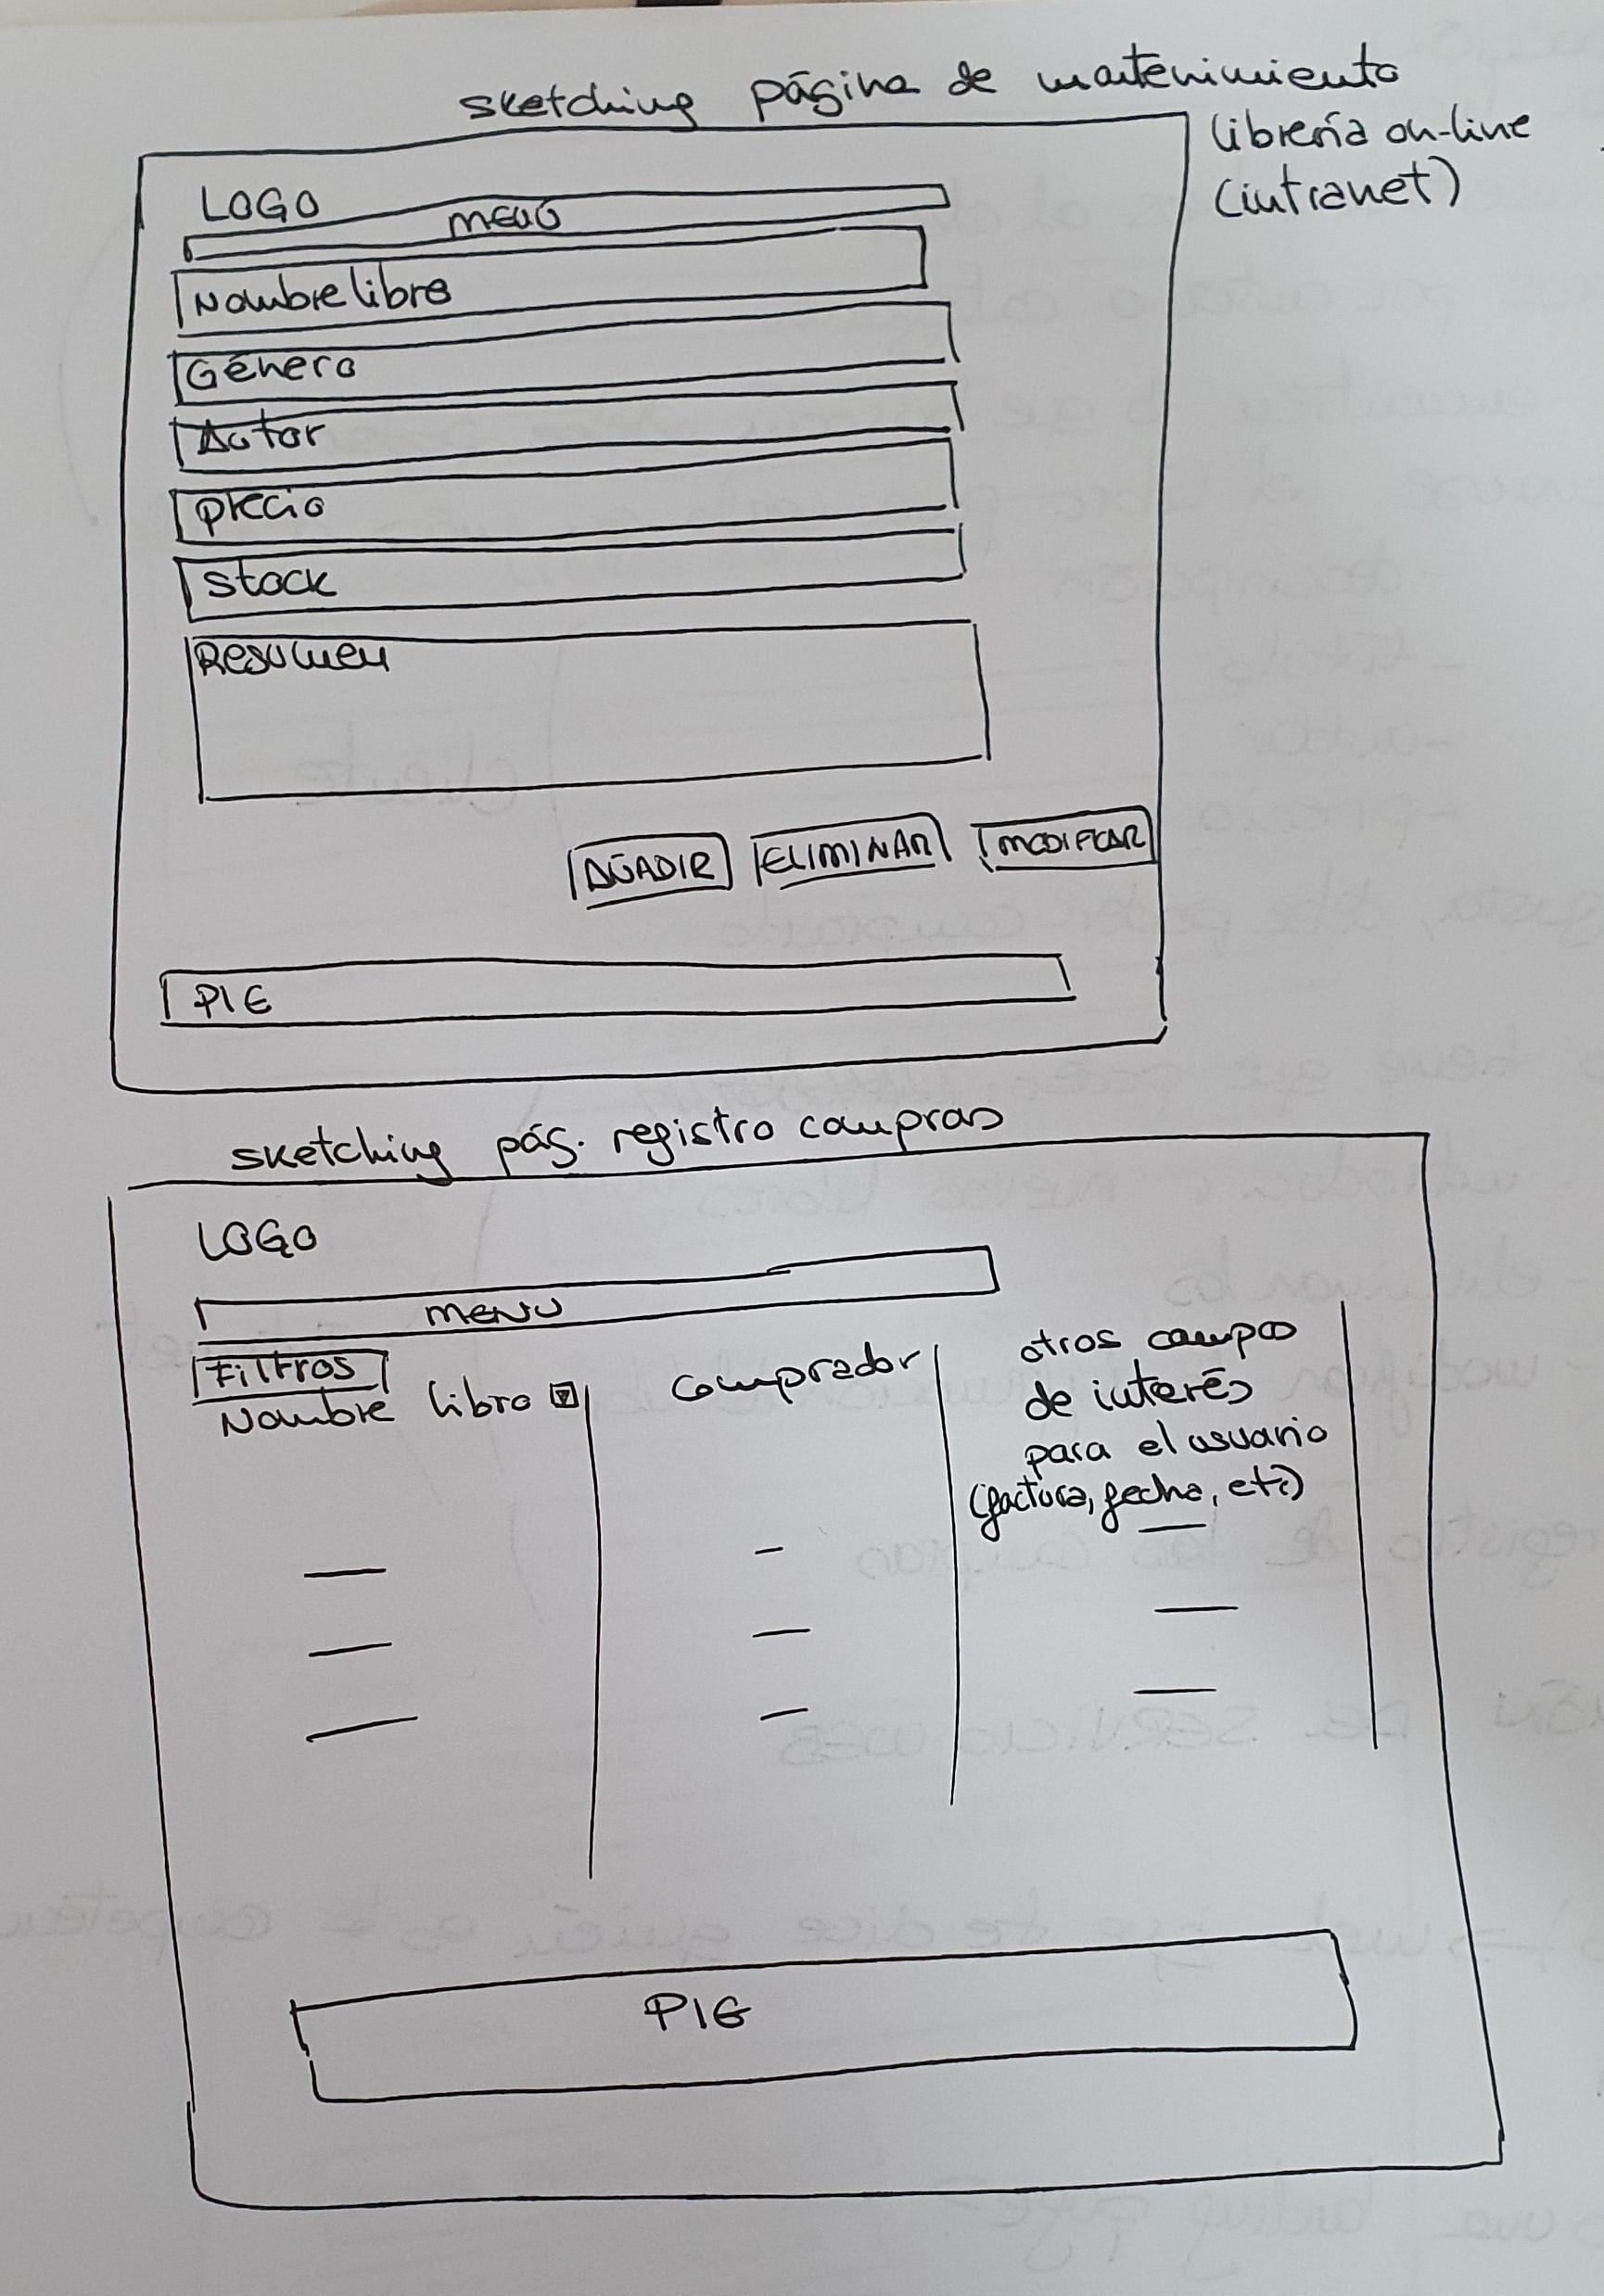 sketching página de mantenimiento
librería on-line
(intranet)
LOGO
MENÚ
Nombre libro
Género
Autor
precio
stock
Resumen
AÑADIR ELIMINAR MODIFICAR
PIE
sketching pág. registro compras
LOGO
MENU
Filtros
Nombre libro
Comprador
otros campos
de interés
para el usuario
(factura, fecha, etc)
PIE